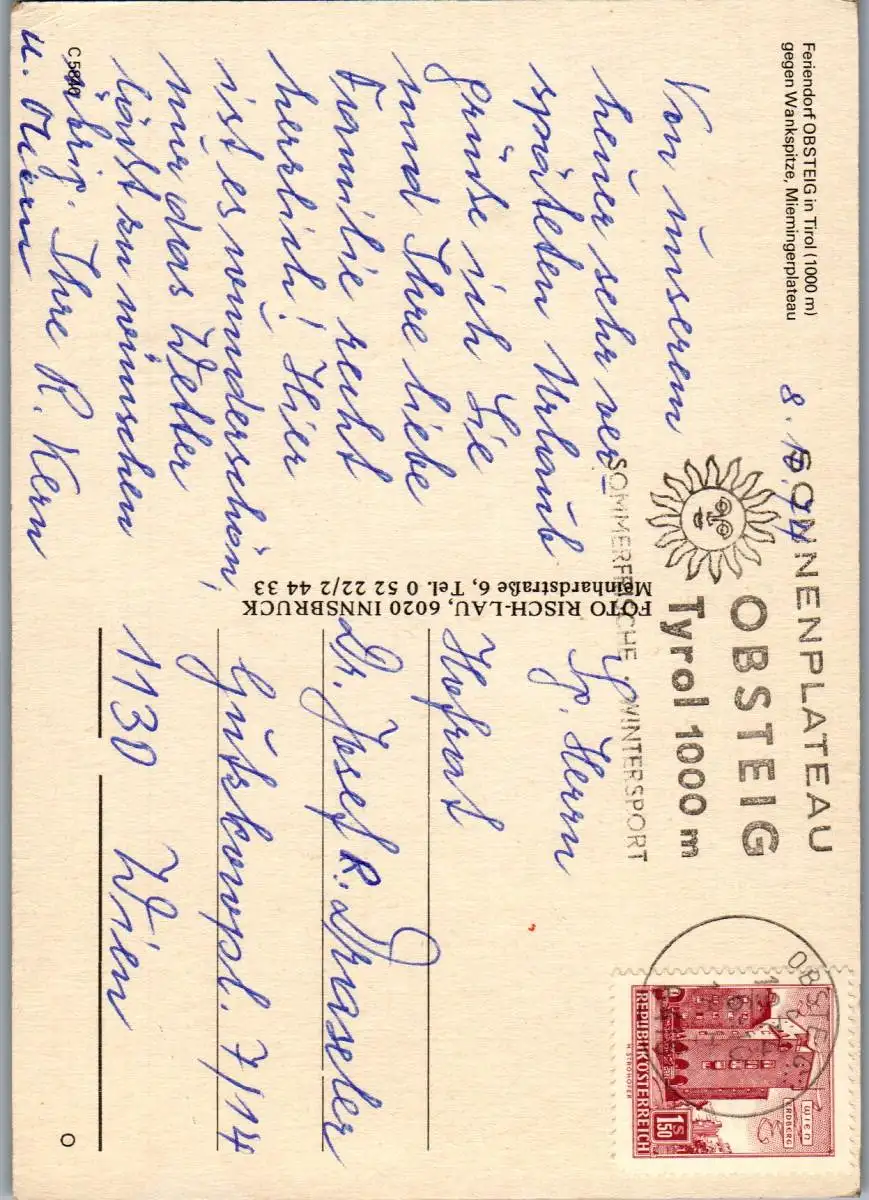 Feriendorf OBSTEIG in Tirol (1000 m)
gegen Wankspitze, Miemingerplateau
Von unserem
heuer sehr ver-
späteten Urlaub
grüße ich Sie
und Ihre liebe
Familie recht
herzlich! Hier
ist es wunderschön,
nur das Wetter
läßt zu wünschen
übrig. Ihre R. Kern
u.
C 5840
FOTO RISCH-LAU, 6020 INNSBRUCK
Meinhardstraße 6, Tel. 0 52 22/2 44 33
SONNENPLATEAU
OBSTEIG
Tyrol 1000 m
SOMMERFRISCHE WINTERSPORT
OBSTEIG
WIEN
ERDBERG
REPUBLIK ÖSTERREICH
1.50
S
Herrn
Hofrat
Dr. Josef R. Draseler
Gutzkowpl. 7/14
1130 Wien